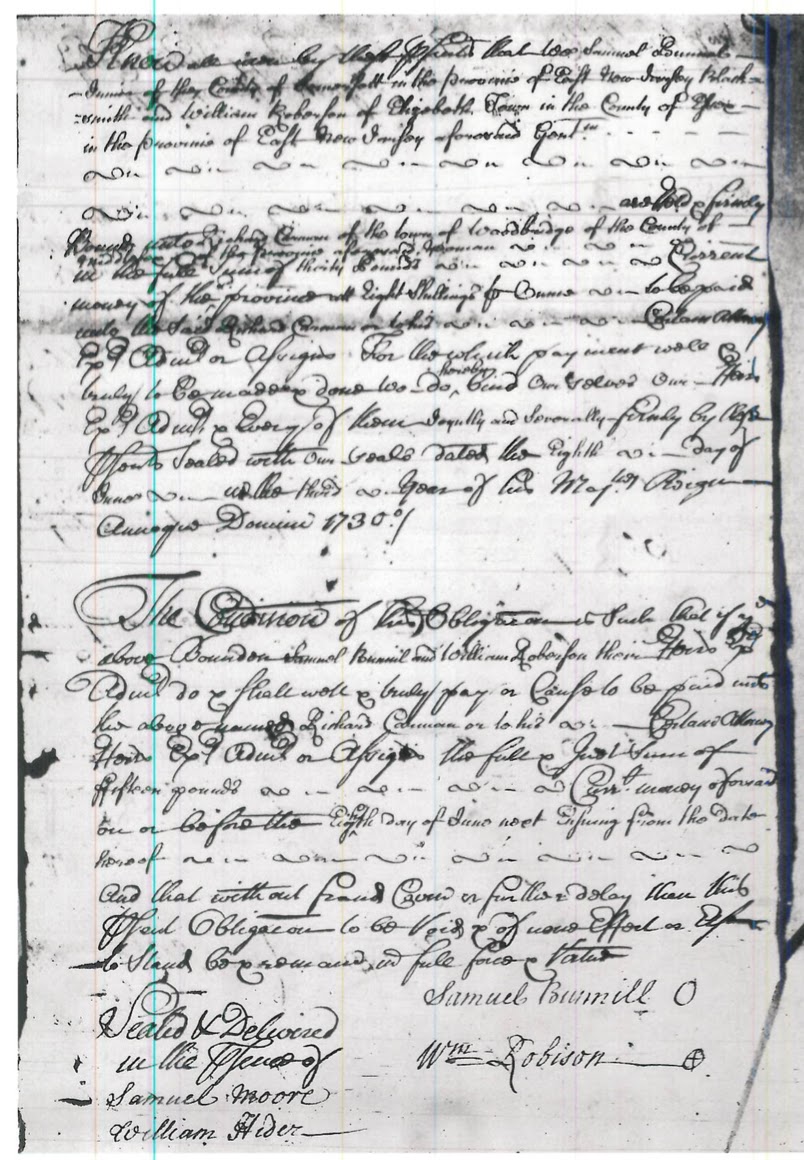 Know all men by these Psents that Wee Samuel Bunnel
Junior of the County of Sommersett in the province of East New Jersey Black
smith and William Roberson of Elizabeth Town in the County of Essex
in the province of East New Jersey aforesaid Gentⁿ
are held & firmly
Bound unto Richard Carman of the town of Woodbridge of the County of
Middlesex of the province aforesaid Yeoman
in the full Sum of thirty Pounds Current
money of the province att Eight Shillings ₱ Ounce to be paid
unto the Said Richard Carman or to his Certain Attorney
Exrs Admrs or Assigns For the which payment well &
truly to be made & done Wee do hereby bind Our Selves Our Heirs
Exrs Admrs & Every of them Joyntly and Severally firmly by these
Psents Sealed with Our Seals dated the Eighth day of
June in the third Year of his Majties Reign
Annoque Domini 1730
The Condition of this Obligation is Such that if ye
above Bounden Samuel Bunnil and William Roberson their Heirs Exrs
Admrs do & Shall well & truly pay or Cause to be paid unto
the above named Richard Carman or to his Certain Attorney
Heirs Exrs Admrs or Assigns the full & Just Sum of
fifteen pounds Currt money aforesaid
on or before the Eighth day of June next Ensuing from the date
hereof
And that without fraud Covin or further delay then this
Psent Obligation to be Void & of none Effect or Else
to Stand be & remain in full force & Virtue
Samuel Bunnill O
Sealed & Delivered
in the Psence of
Wm Robison
Samuel Moore
William Hider